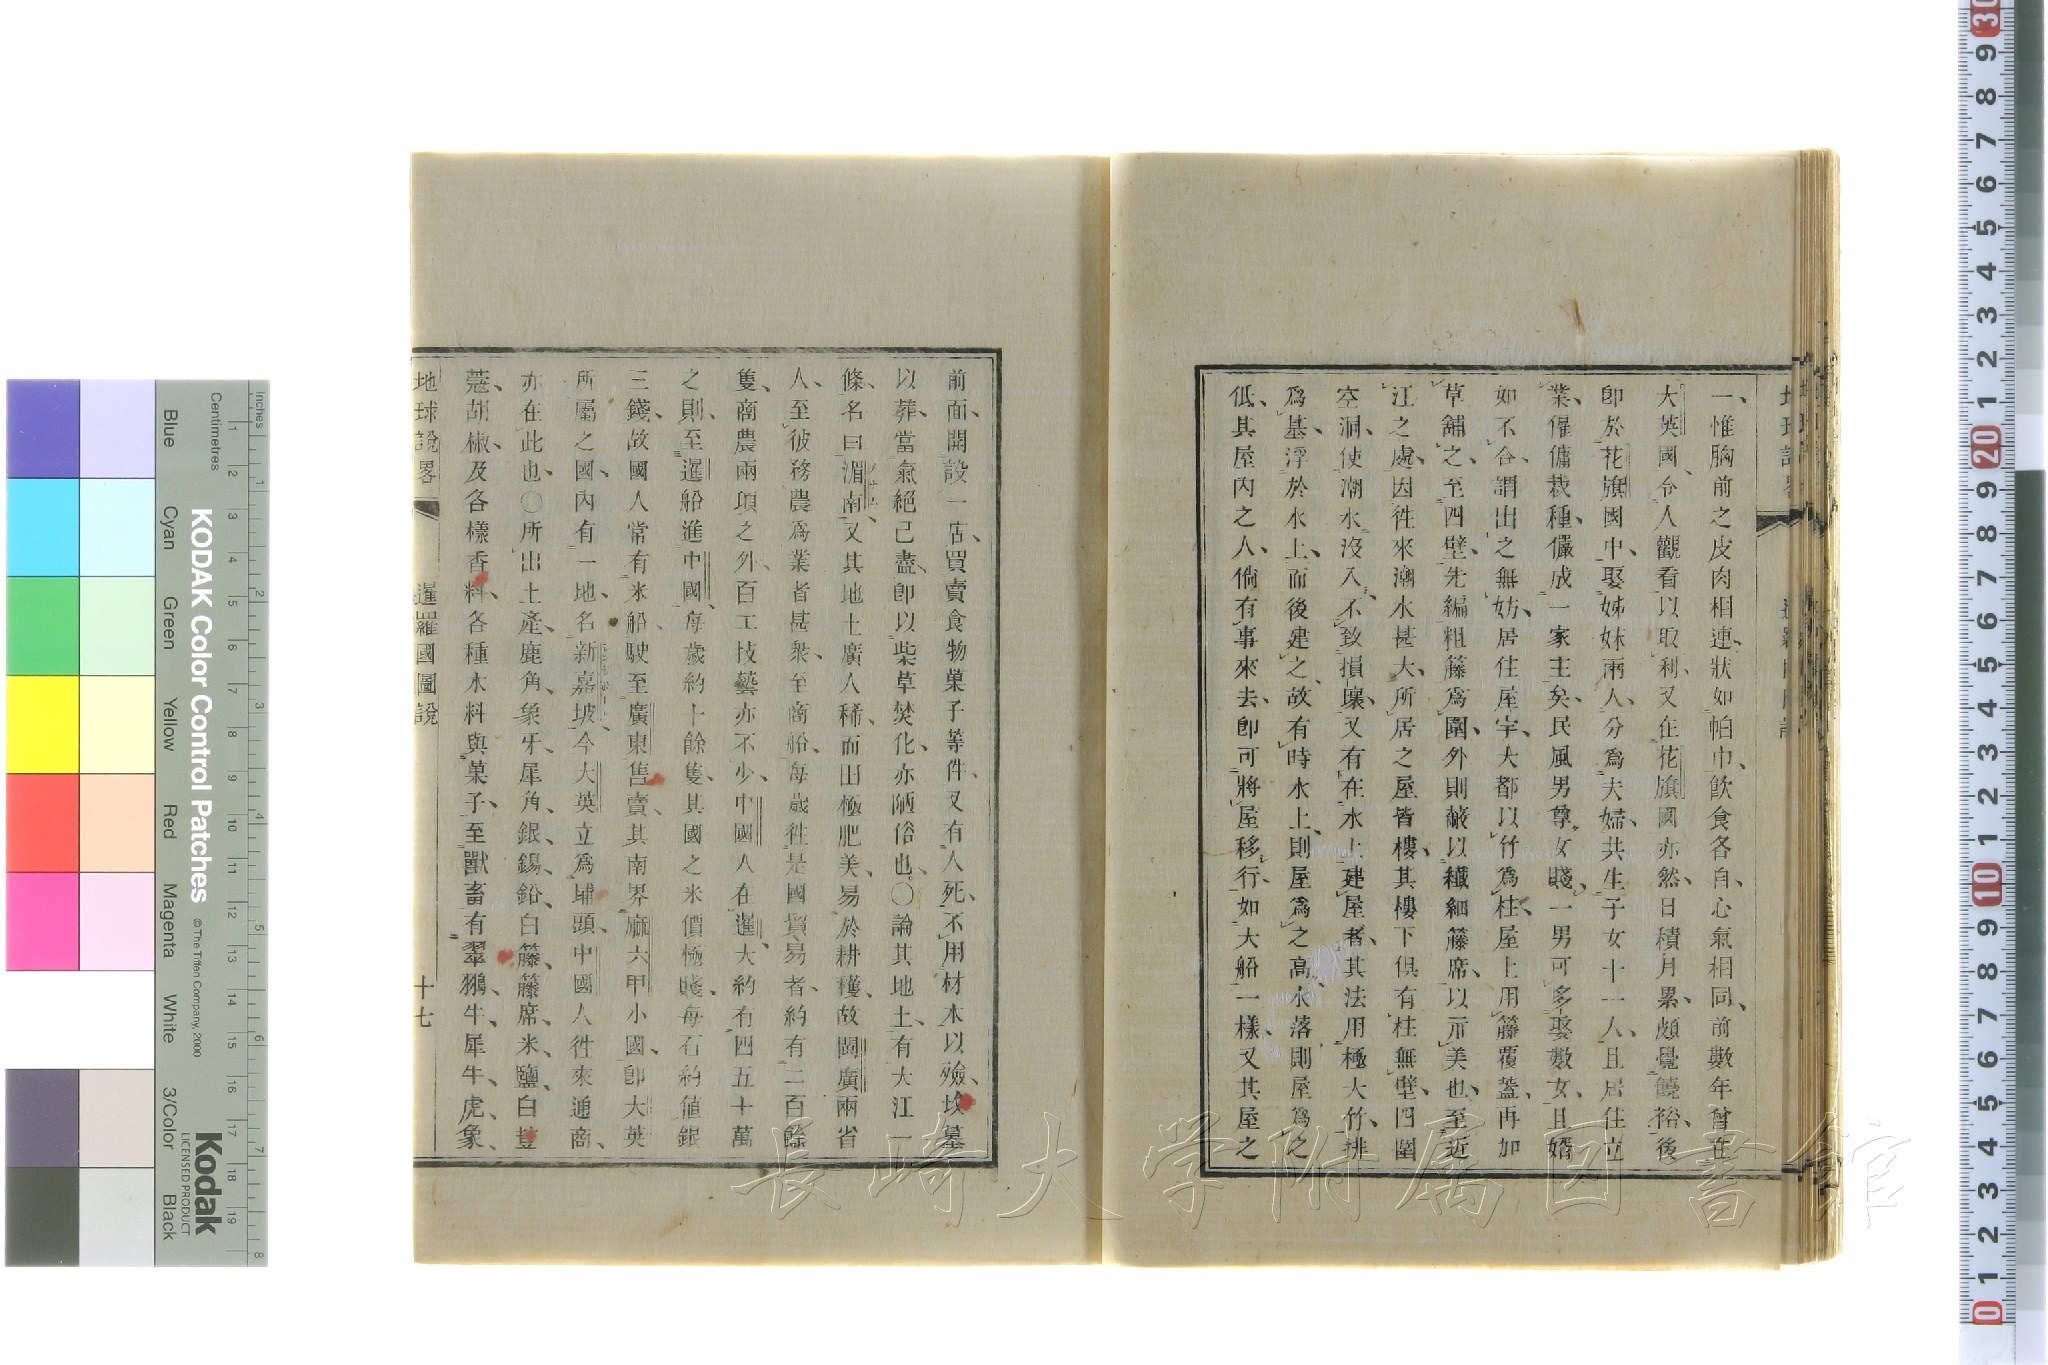 一、惟胸前之皮肉相連、狀如帕巾、飮食各自、心氣相同、前數年曾在
大英國、令人觀看以取利、又在花旗國亦然、日積月累、頗覺饒裕、後
卽於花旗國中、娶姊妹兩人、分爲夫婦、共生子女十一人、且居住立
業、僱傭栽種、儼成一家主矣、民風男尊女賤、一男可多娶數女、且婿
如不合、謂出之無妨、居住屋宇、大都以竹爲柱、屋上用籐覆蓋、再加
草舖之、至四壁、先編粗籐爲圍、外則蔽以纖細籐席、以示美也、至近
江之處、因徃來潮水甚大、所居之屋皆樓、其樓下俱有柱無壁、四圍
空洞、使潮水沒入、不致損壞、又有在水上建屋者、其法用極大竹、排
爲基、浮於水上、而後建之、故有時水上、則屋爲之高、水落則屋爲之
低、其屋內之人、倘有事來去、卽可將屋移行、如大船一樣、又其屋之
前面、開設一店、買賣食物菓子等件、又有人死、不用材木以殮、墳墓
以葬、當氣絕已盡、卽以柴草焚化、亦陋俗也。〇論其地土、有大江一
條、名曰湄南、又其地土廣人稀、而田極肥美、易於耕穫、故閩廣兩省
人、至彼務農爲業者甚衆、至商船、每歲徃是國貿易者、約有二百餘
隻、商農兩項之外、百工技藝亦不少、中國人在暹、大約有四五十萬
之則、至暹船進中國、每歲約十餘隻、其國之米價極賤、每石約値銀
三錢、故國人常有米船、駛至廣東售賣、其南界麻六甲小國、卽大英
所屬之國、內有一地、名新嘉坡、今大英立爲埔頭、中國人徃來通商、
亦在此也、〇所出土產、鹿角、象牙、犀角、銀、錫、鉛、白籐、籐席、米、鹽、白荳
蔻、胡椒、及各樣香料、各種木料與菓子、至獸畜有翠鷉、牛、犀牛、虎、象、
地球說畧 暹羅國圖說 十七
長崎大学附属図書館
KODAK Color Control Patches
© The Tiffen Company, 2000
Kodak
LICENSED PRODUCT
Blue Cyan Green Yellow Red Magenta White 3/Color Black
Centimetres
Inches